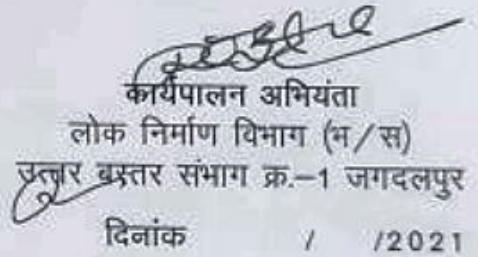 कार्यपालन अभियंता
लोक निर्माण विभाग (भ/स)
उत्तर बस्तर संभाग क्र.–1 जगदलपुर
दिनांक / /2021